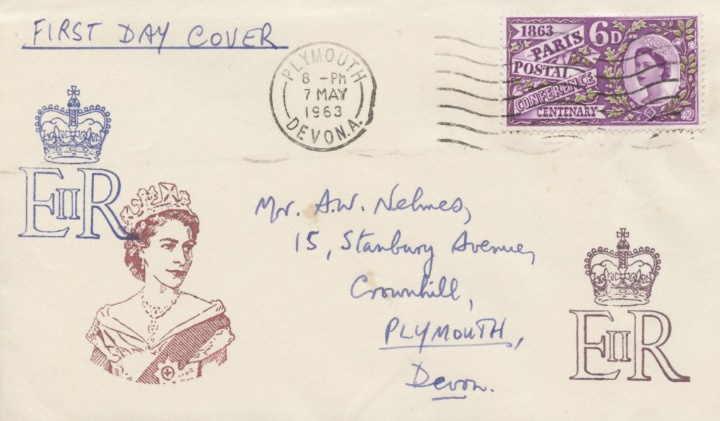 FIRST DAY COVER
PLYMOUTH
8 - PM
7 MAY
1963
DEVON.A.
1863
6D
PARIS
POSTAL
CONFERENCE
CENTENARY
EIIR
Mr. A.W. Nelmes,
15, Stanbury Avenue,
Crownhill,
PLYMOUTH,
Devon.
EIIR